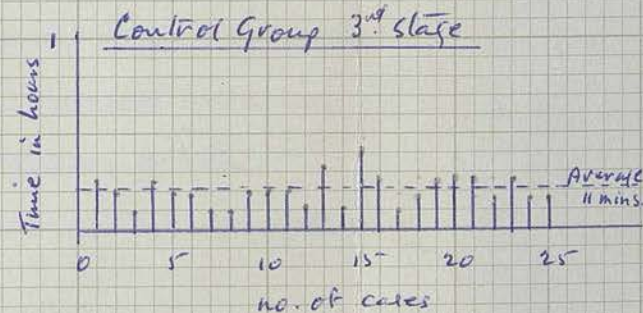 Control Group 3rd. stage
1
Time in hours
Average
11 mins.
0 5 10 15 20 25
no. of cases